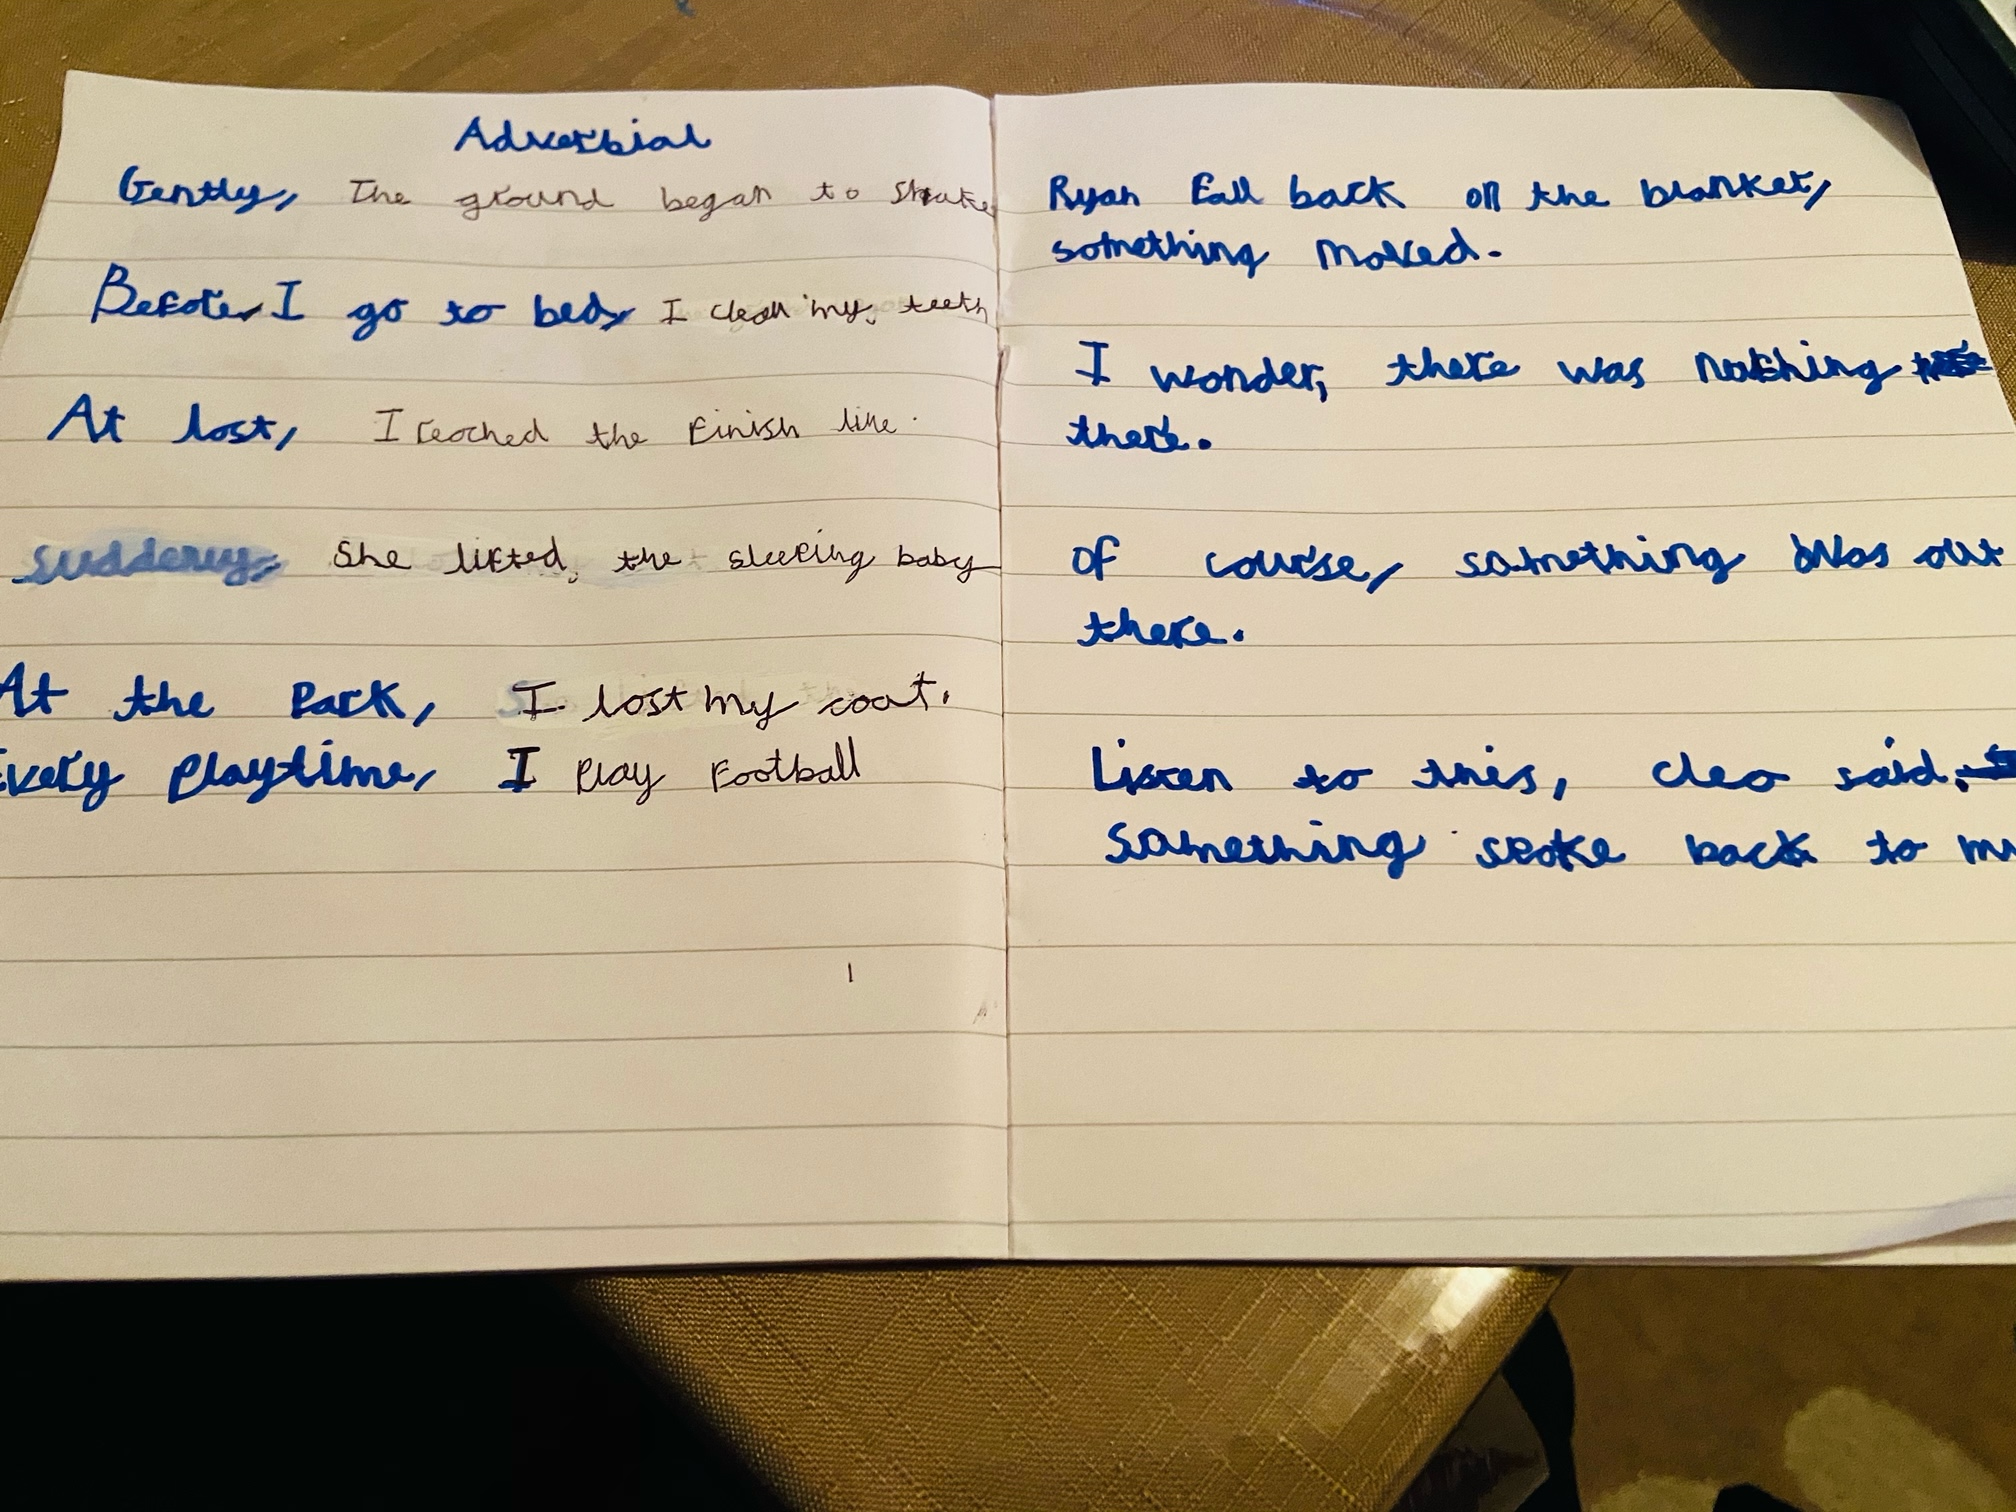 Adverbial
Gently, The ground began to shake
Before, I go to bed, I clean my teeth
At last, I reached the finish line.
Suddenly, She lifted, the sleeping baby
At the Park, I lost my coat.
Every playtime, I play football
Ryan Fall back on the blanket,
something moved.
I wonder, there was nothing
there.
Of course, something was out
there.
Listen to this, cleo said.
Something spoke back to